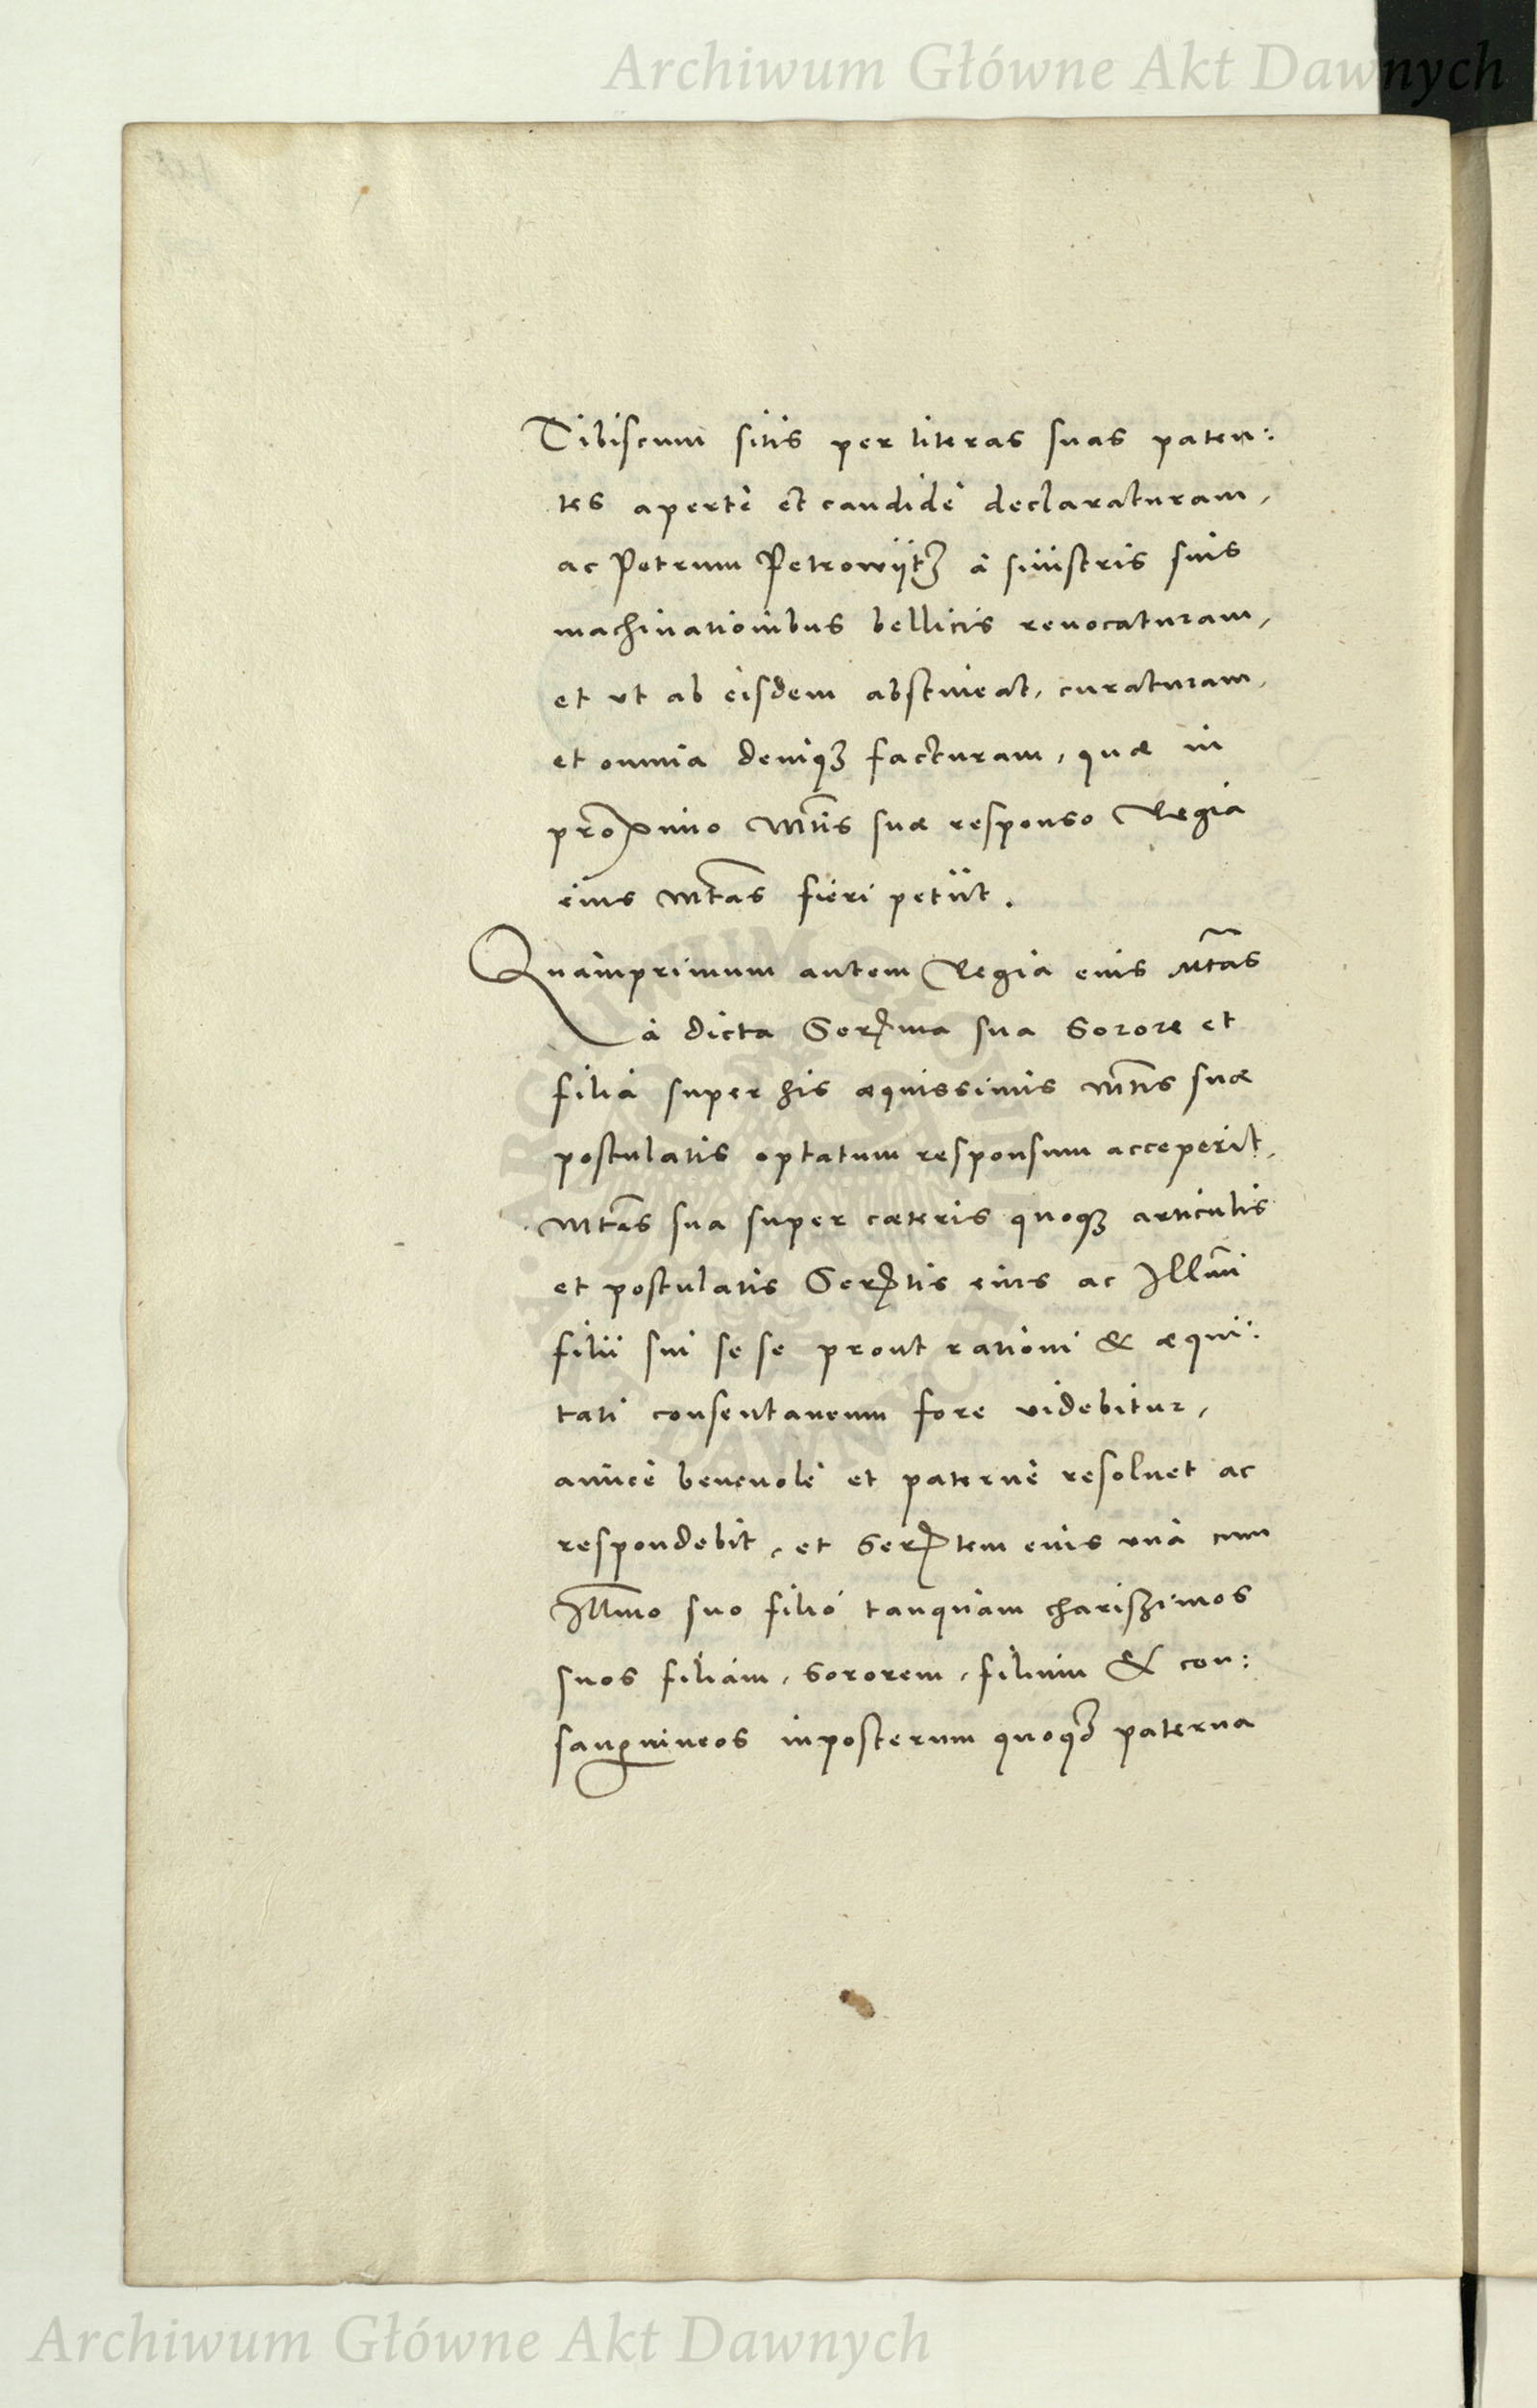 Archiwum Główne Akt Dawnych
Tibiscum sitis per literas suas paten:
tes apertè et candidè declaraturam,
ac Petrum Petrowÿtz à sinistris suis
machinationibus bellicis reuocaturam,
et vt ab eisdem abstineat, curaturam,
et omnia deniq3 facturam, quæ in
proximo Mtis suæ responso Regia
eius Mtas fieri petijt.
Quamprimum autem Regia eius Mtas
à dicta Serma sua Sorore et
filia super his æquissimis Mtis suæ
postulatis optatum responsum acceperit,
Mtas sua super cæteris quoq3 articulis
et postulatis Sertis eius ac Illmi
filii sui se se prout rationi & æqui:
tati consentaneum fore videbitur,
amicè beneuolè et paternè resoluet ac
respondebit, et Sertem eius vnà cum
Illmo suo filio tanquam charissimos
suos filiam, Sororem, filium & con:
sanguineos inposterum quoq3 paterna
Archiwum Główne Akt Dawnych